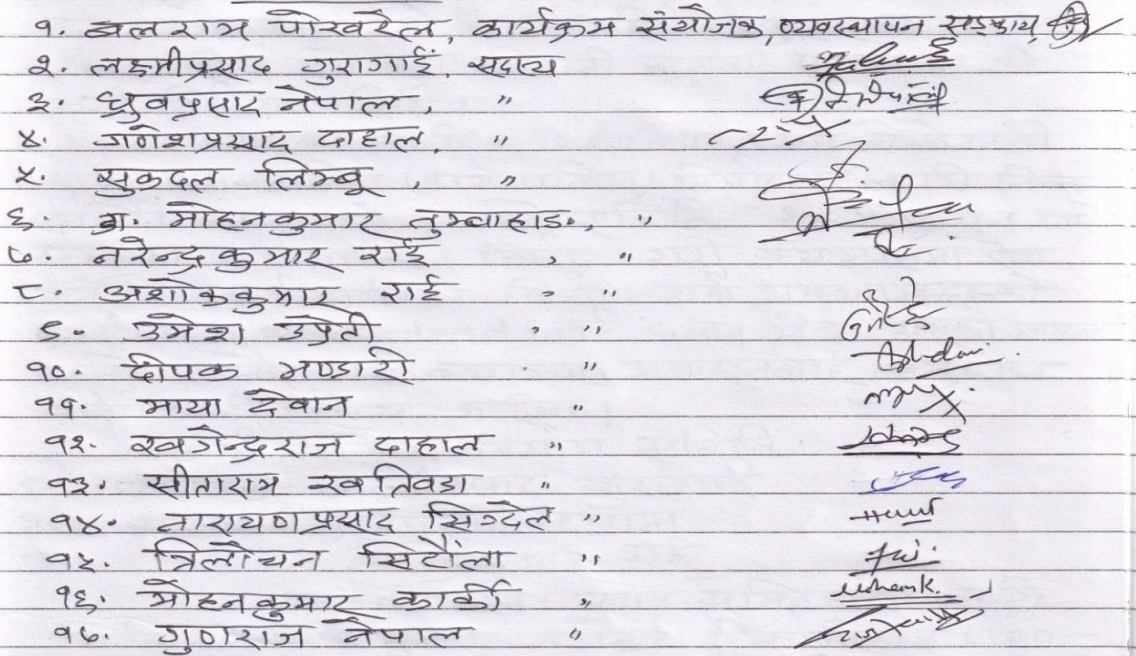 १. बलराम पोखरेल, कार्यक्रम संयोजक, व्यवस्थापन सङ्काय
२. लक्ष्मीप्रसाद गुरागाई, सदस्य
३. ध्रुवप्रसाद नेपाल, "
४. गणेशप्रसाद दाहाल, "
५. सुकदल लिम्बू, "
६. प्रा. मोहनकुमार तुम्बाहाङ, "
७. नरेन्द्रकुमार राई , "
८. अशोककुमार राई , "
९. उमेश उप्रेती , "
१०. दीपक भण्डारी "
११. माया देवान "
१२. खगेन्द्रराज दाहाल "
१३. सीताराम खतिवडा "
१४. नारायणप्रसाद सिग्देल "
१५. त्रिलोचन सिटौला "
१६. मोहनकुमार कार्की "
१७. गुणराज नेपाल "